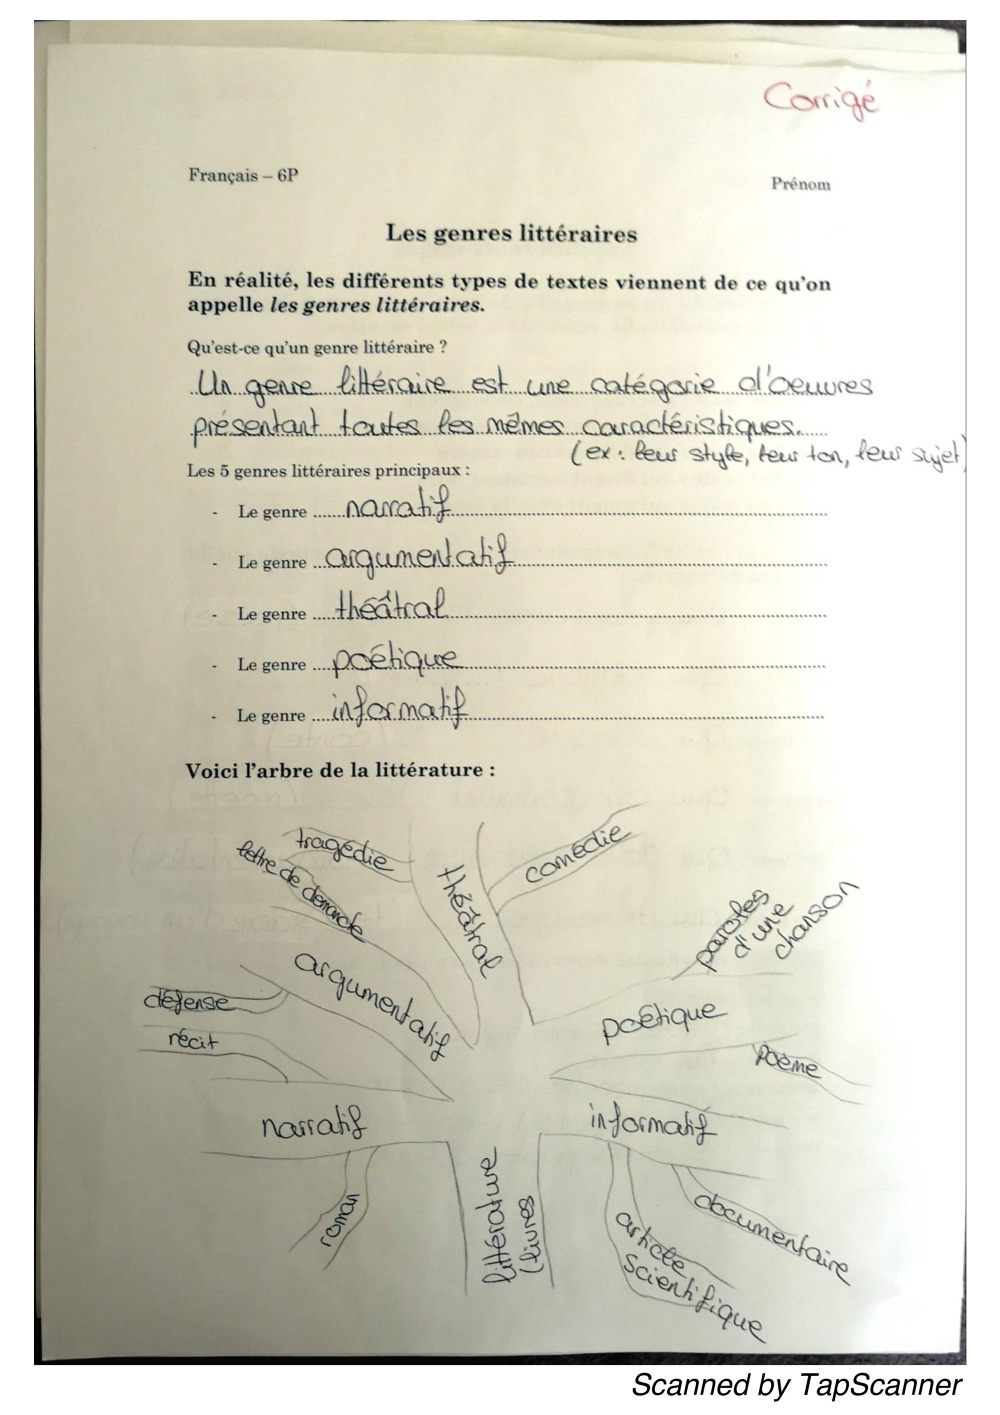 Corrigé
Français – 6P
Prénom
Les genres littéraires
En réalité, les différents types de textes viennent de ce qu'on
appelle les genres littéraires.
Qu'est-ce qu'un genre littéraire ?
Un genre littéraire est une catégorie d'oeuvres
présentant toutes les mêmes caractéristiques.
(ex : leur style, leur ton, leur sujet)
Les 5 genres littéraires principaux :
- Le genre narratif
- Le genre argumentatif
- Le genre théâtral
- Le genre poétique
- Le genre informatif
Voici l'arbre de la littérature :
tragédie
lettre de demande
théâtral
comédie
paroles
d'une
chanson
argumentatif
défense
récit
poétique
poème
narratif
informatif
roman
littérature
(livres
documentaire
article
scientifique
Scanned by TapScanner